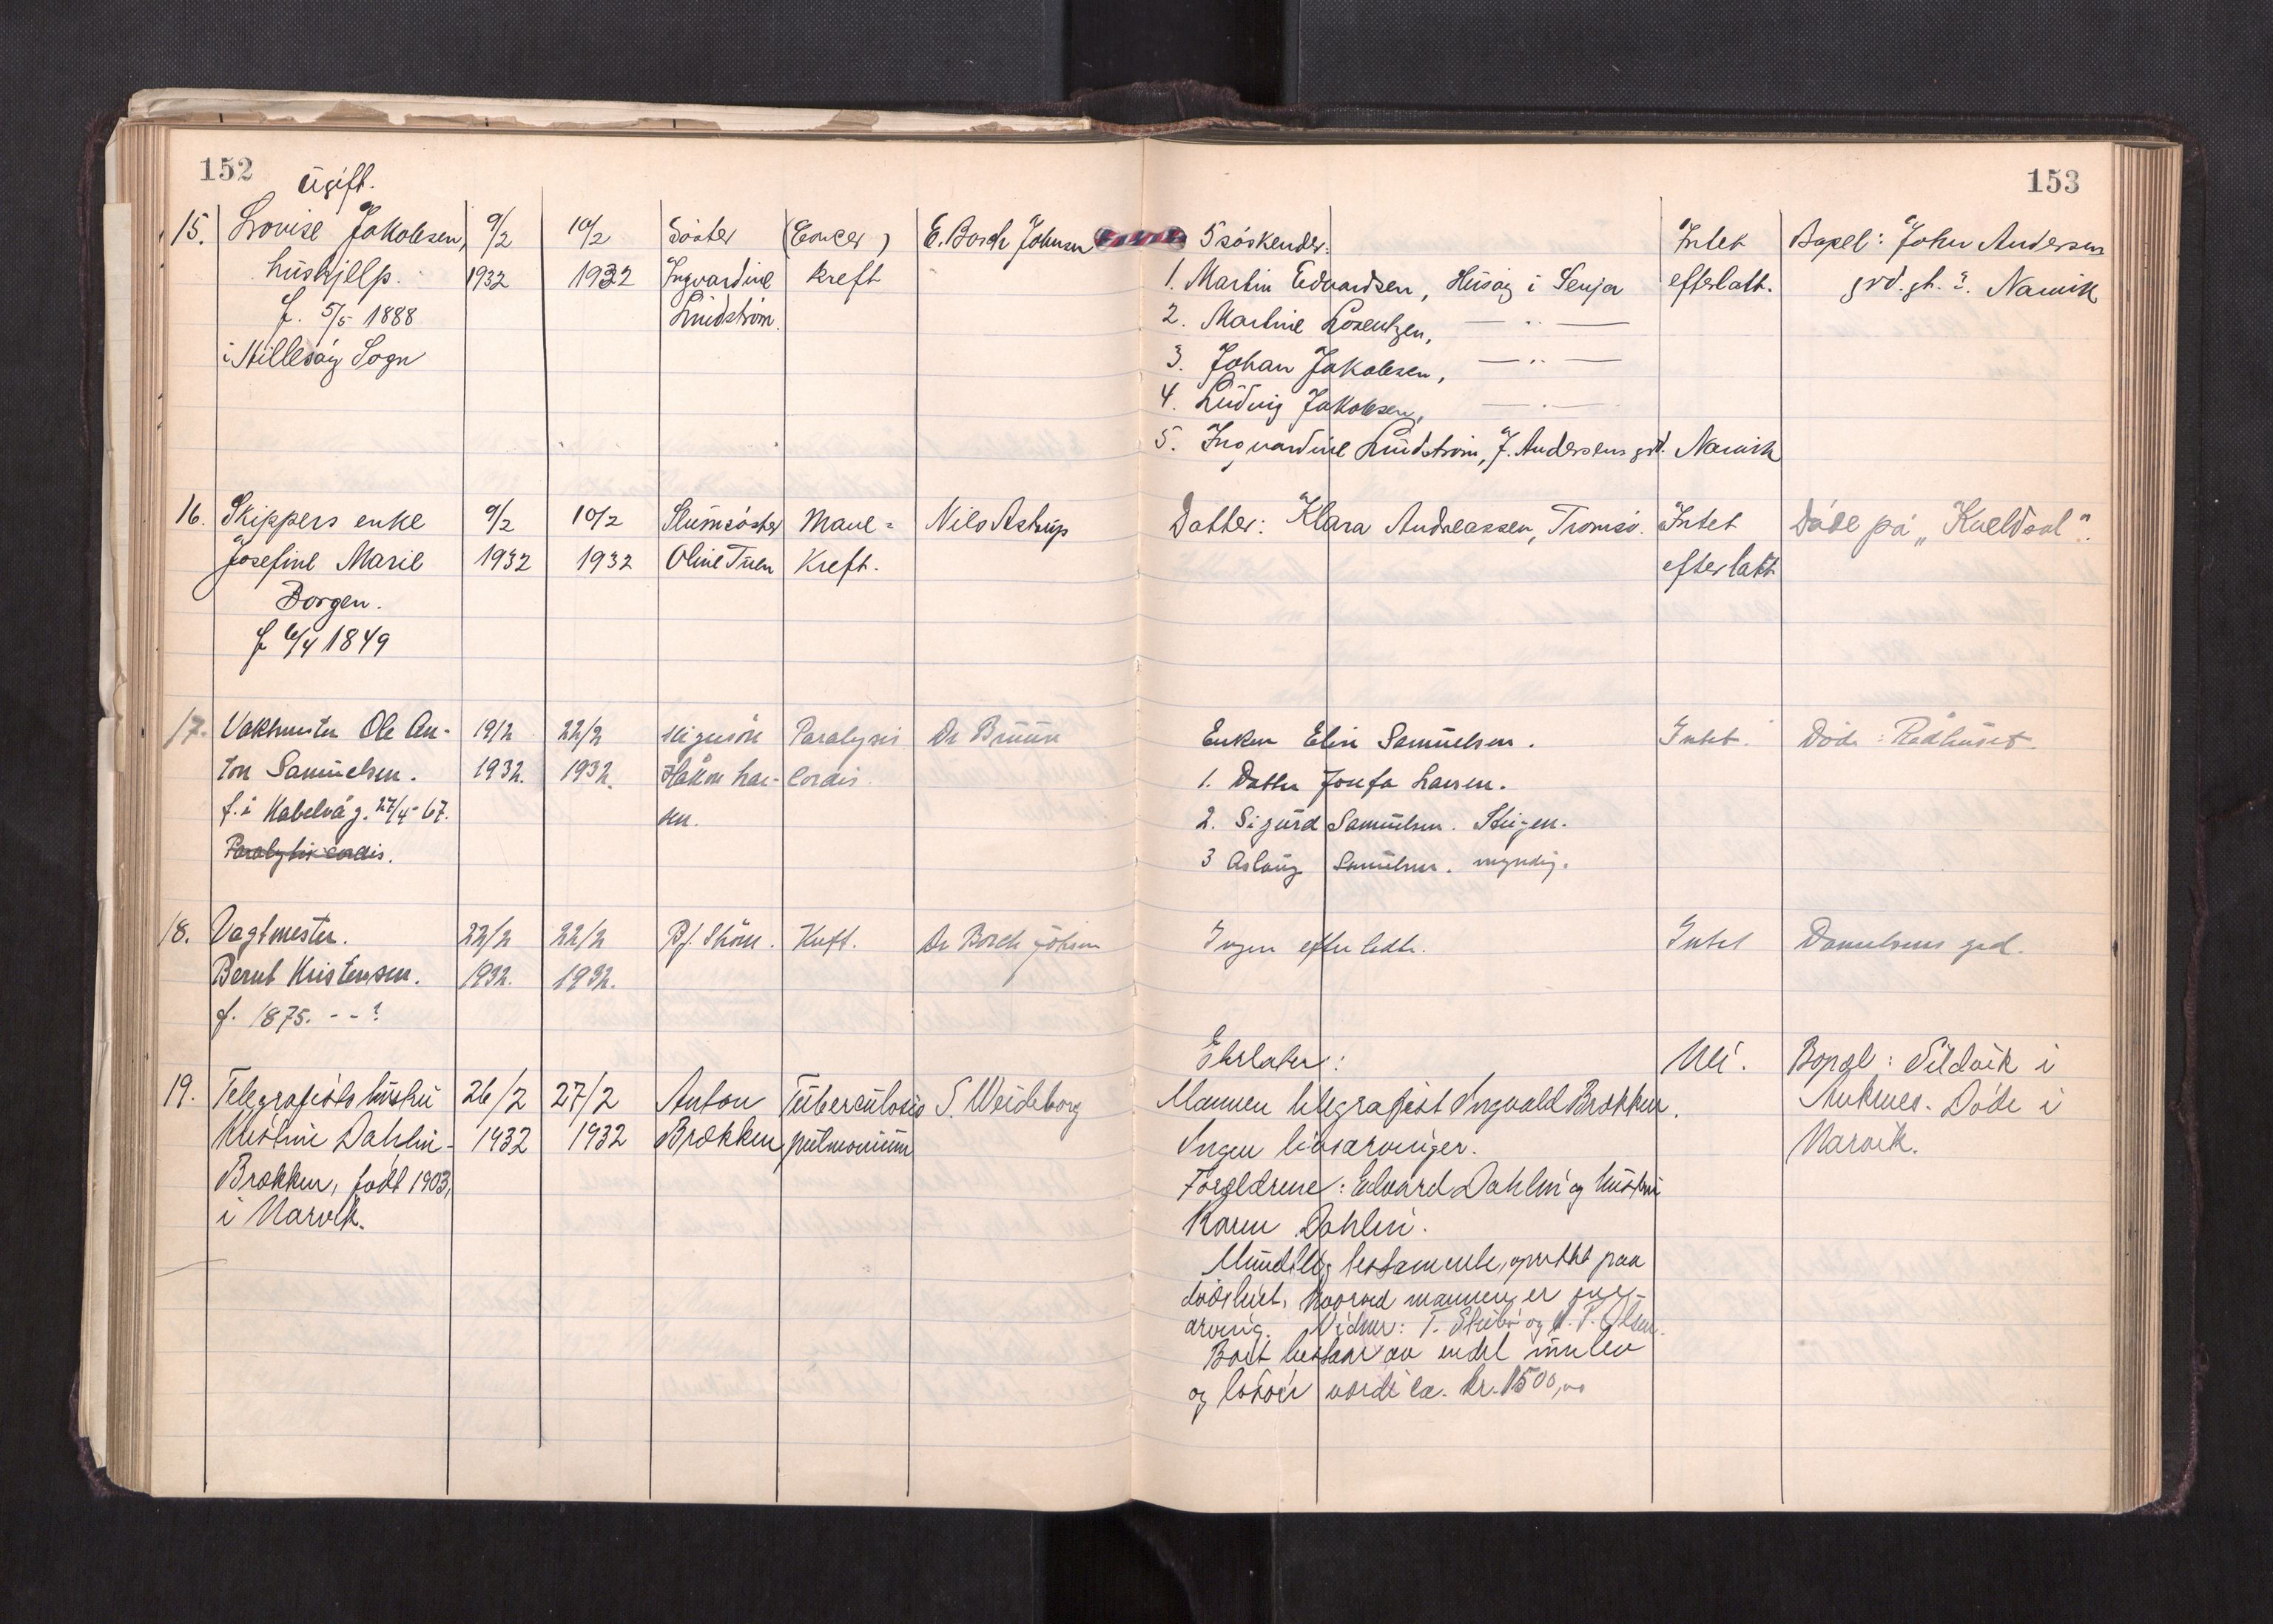 152
153
Ugift.
15. Lovise Jakobsen, 9/2 10/2 Søster (Cancer) E. Borch Johnsen 5 søskender: Intet Bopel: John Andersens
hushjelp. 1932 1932 Ingvardine kreft 1. Martin Edvardsen, Husøy i Senja efterlatt. grd. gt. 2. Narvik
f. 5/5 1888 Lindstrøm. 2. Martine Lorentzen, — " —
i Hillesøy Sogn 3. Johan Jakobsen, — " —
4. Ludvig Jakobsen, — " —
5. Ingvardine Lindstrøm, J. Andersens grd. Narvik
16. Skippers enke 9/2 10/2 Slumsøster Mave= Nils Astrup Datter: Klara Andreassen, Tromsø. Intet Døde på "Kveldsol".
Josefine Marie 1932 1932 Oline Tuen Kreft. efterlatt
Borgen.
f 6/4 1849
17. Vaktmester Ole An- 19/2 22/2 Svigersøn Paralysis Dr Bruun Enken Elin Samuelsen. Intet. Døde: Rådhuset.
ton Samuelsen. 1932. 1932. Håkon Lar- Cordis. 1. Datter Josefa Larsen.
f. i Kabelvåg. 27/4-67. sen. 2. Sigurd Samuelsen. Steigen.
Paralysis cordis. 3 Aslaug Samuelsen. myndig.
18. Vagtmester. 22/2 22/2 Bj. Strøm. Kreft. Dr Borch Johnsen Ingen efterladte. Intet Danielsens grd.
Bernt Kristensen. 1932. 1932.
f. 1875. - - ?
Efterlater: Uli. Bopæl: Sildvik i
19. Telegrafists hustru 26/2 27/2 Anton Tuberculosis S. Weideborg Mannen telegrafist Ingvald Brækken. Ankenes. Døde i
Kristine Dahlin- 1932 1932 Brækken pulmonum Ingen livsarvinger. Narvik.
Brækken, født 1903, Forældrene: Edvard Dahlin og hustru
i Narvik. Karen Dahlin.
Mundtlig testamente, oprettet paa
dødsleiet, hvorved mannen er ene-
arving. Vidner: T. og Olsen.
Boet bestaar av endel innbo
og løsøre værdi ca. kr. 1500,00